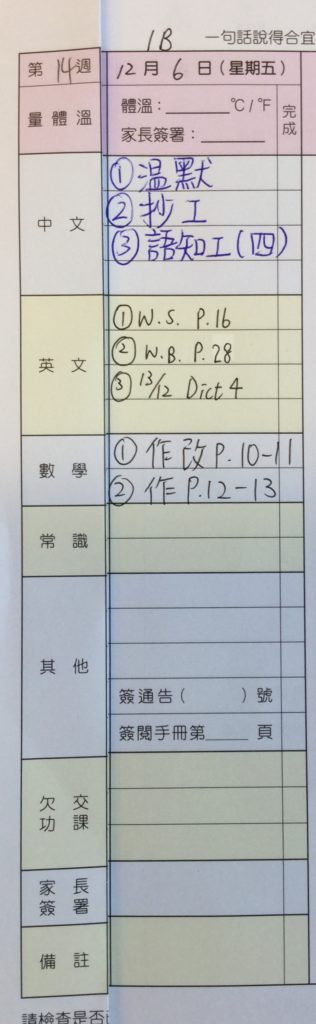 1B 一句話說得合宜
第14週 12月6日(星期五)
量體溫 體溫:________°C/°F 完成
家長簽署:________
中文
①温默
②抄工
③語知工(四)
英文
①W.S. P.16
②W.B. P.28
③13/12 Dict 4
數學
①作改P.10-11
②作P.12-13
常識
其他
簽通告( )號
簽閱手冊第_____頁
欠交
功課
家長
簽署
備註
請檢查是否